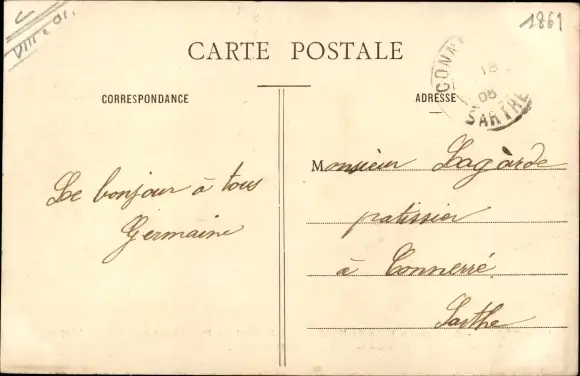 VIIIe ar.
1861
CARTE POSTALE
CONN
18
05
SARTHE
CORRESPONDANCE
ADRESSE
Le bonjour à tous
Germaine
Monsieur Lagarde
patissier
à Connerré
Sarthe